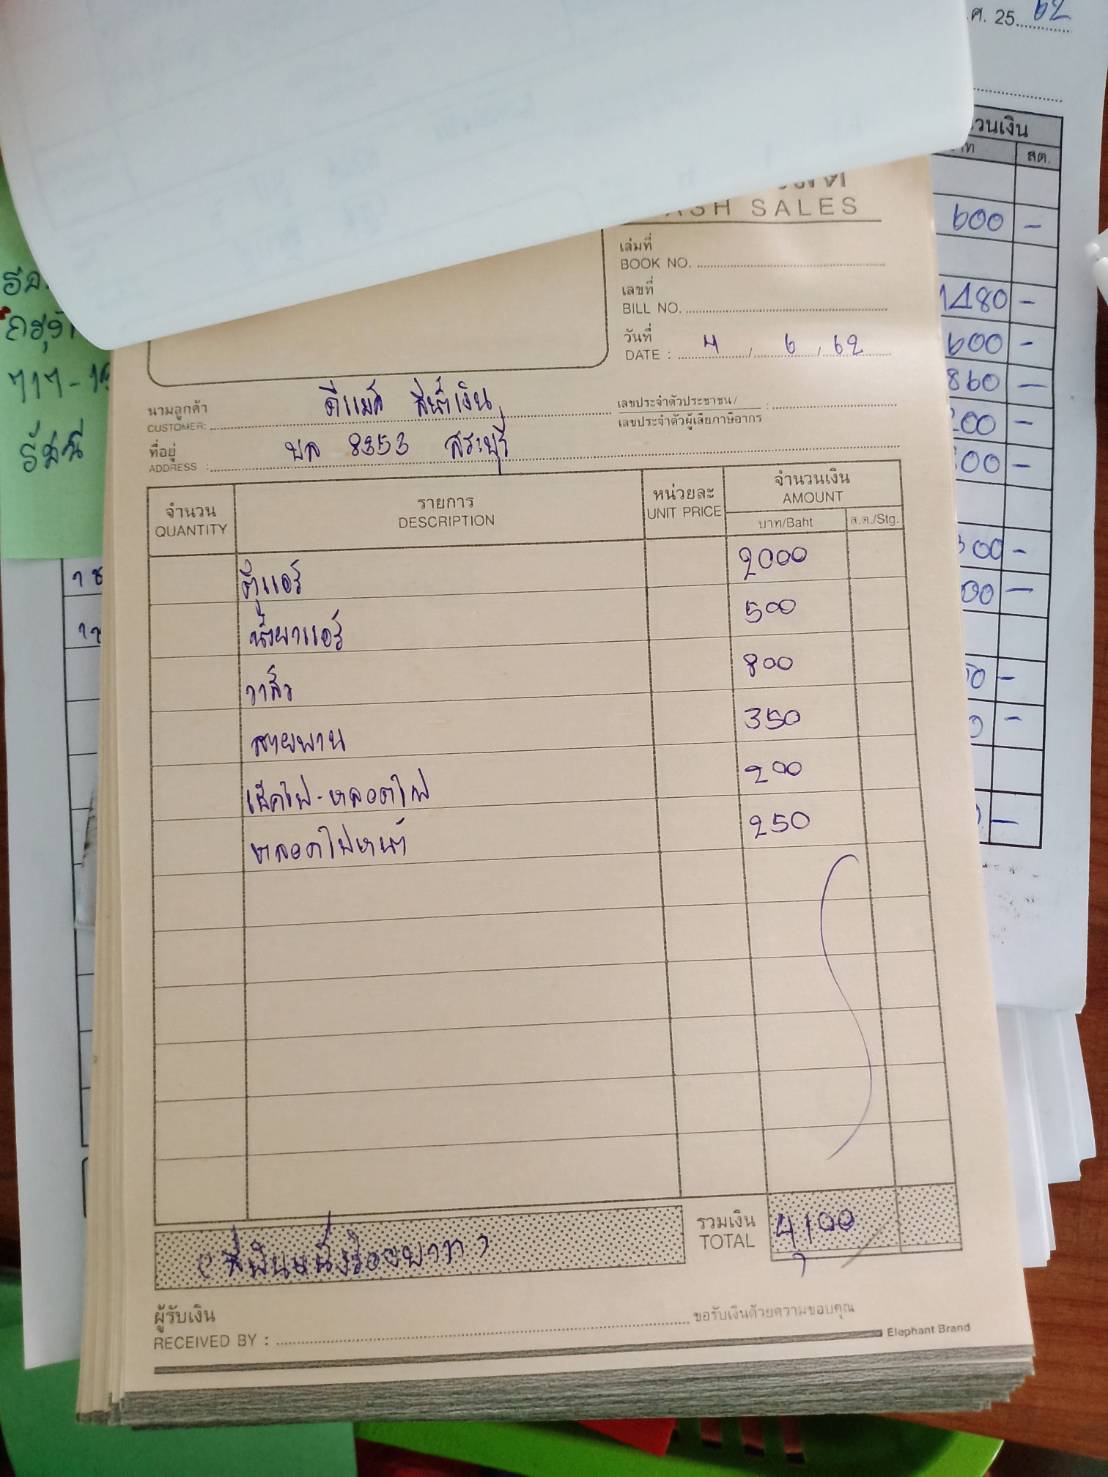 ศ. 25 62
วนเงิน
สต.
CASH SALES
600 -
เล่มที่
BOOK NO.
เลขที่
BILL NO.
1480 -
วันที่
DATE : 4 / 6 / 62
600 -
860 -
นามลูกค้า ดีแมค สีน้ำเงิน
CUSTOMER:
เลขประจำตัวประชาชน/
เลขประจำตัวผู้เสียภาษีอากร :
ที่อยู่ บล 8353 สระบุรี
ADDRESS :
717-19
จำนวน รายการ หน่วยละ จำนวนเงิน
QUANTITY DESCRIPTION UNIT PRICE AMOUNT
บาท/Baht ส.ต./Stg.
ตู้แอร์ 2000
น้ำยาแอร์ 500
วาล์ว 800
สายพาน 350
เช็คไฟ-หลอดไฟ 200
หลอดไฟหน้า 250
(สี่พันหนึ่งร้อยบาท) รวมเงิน 4,100
TOTAL
ผู้รับเงิน ขอรับเงินด้วยความขอบคุณ
RECEIVED BY :
Elephant Brand